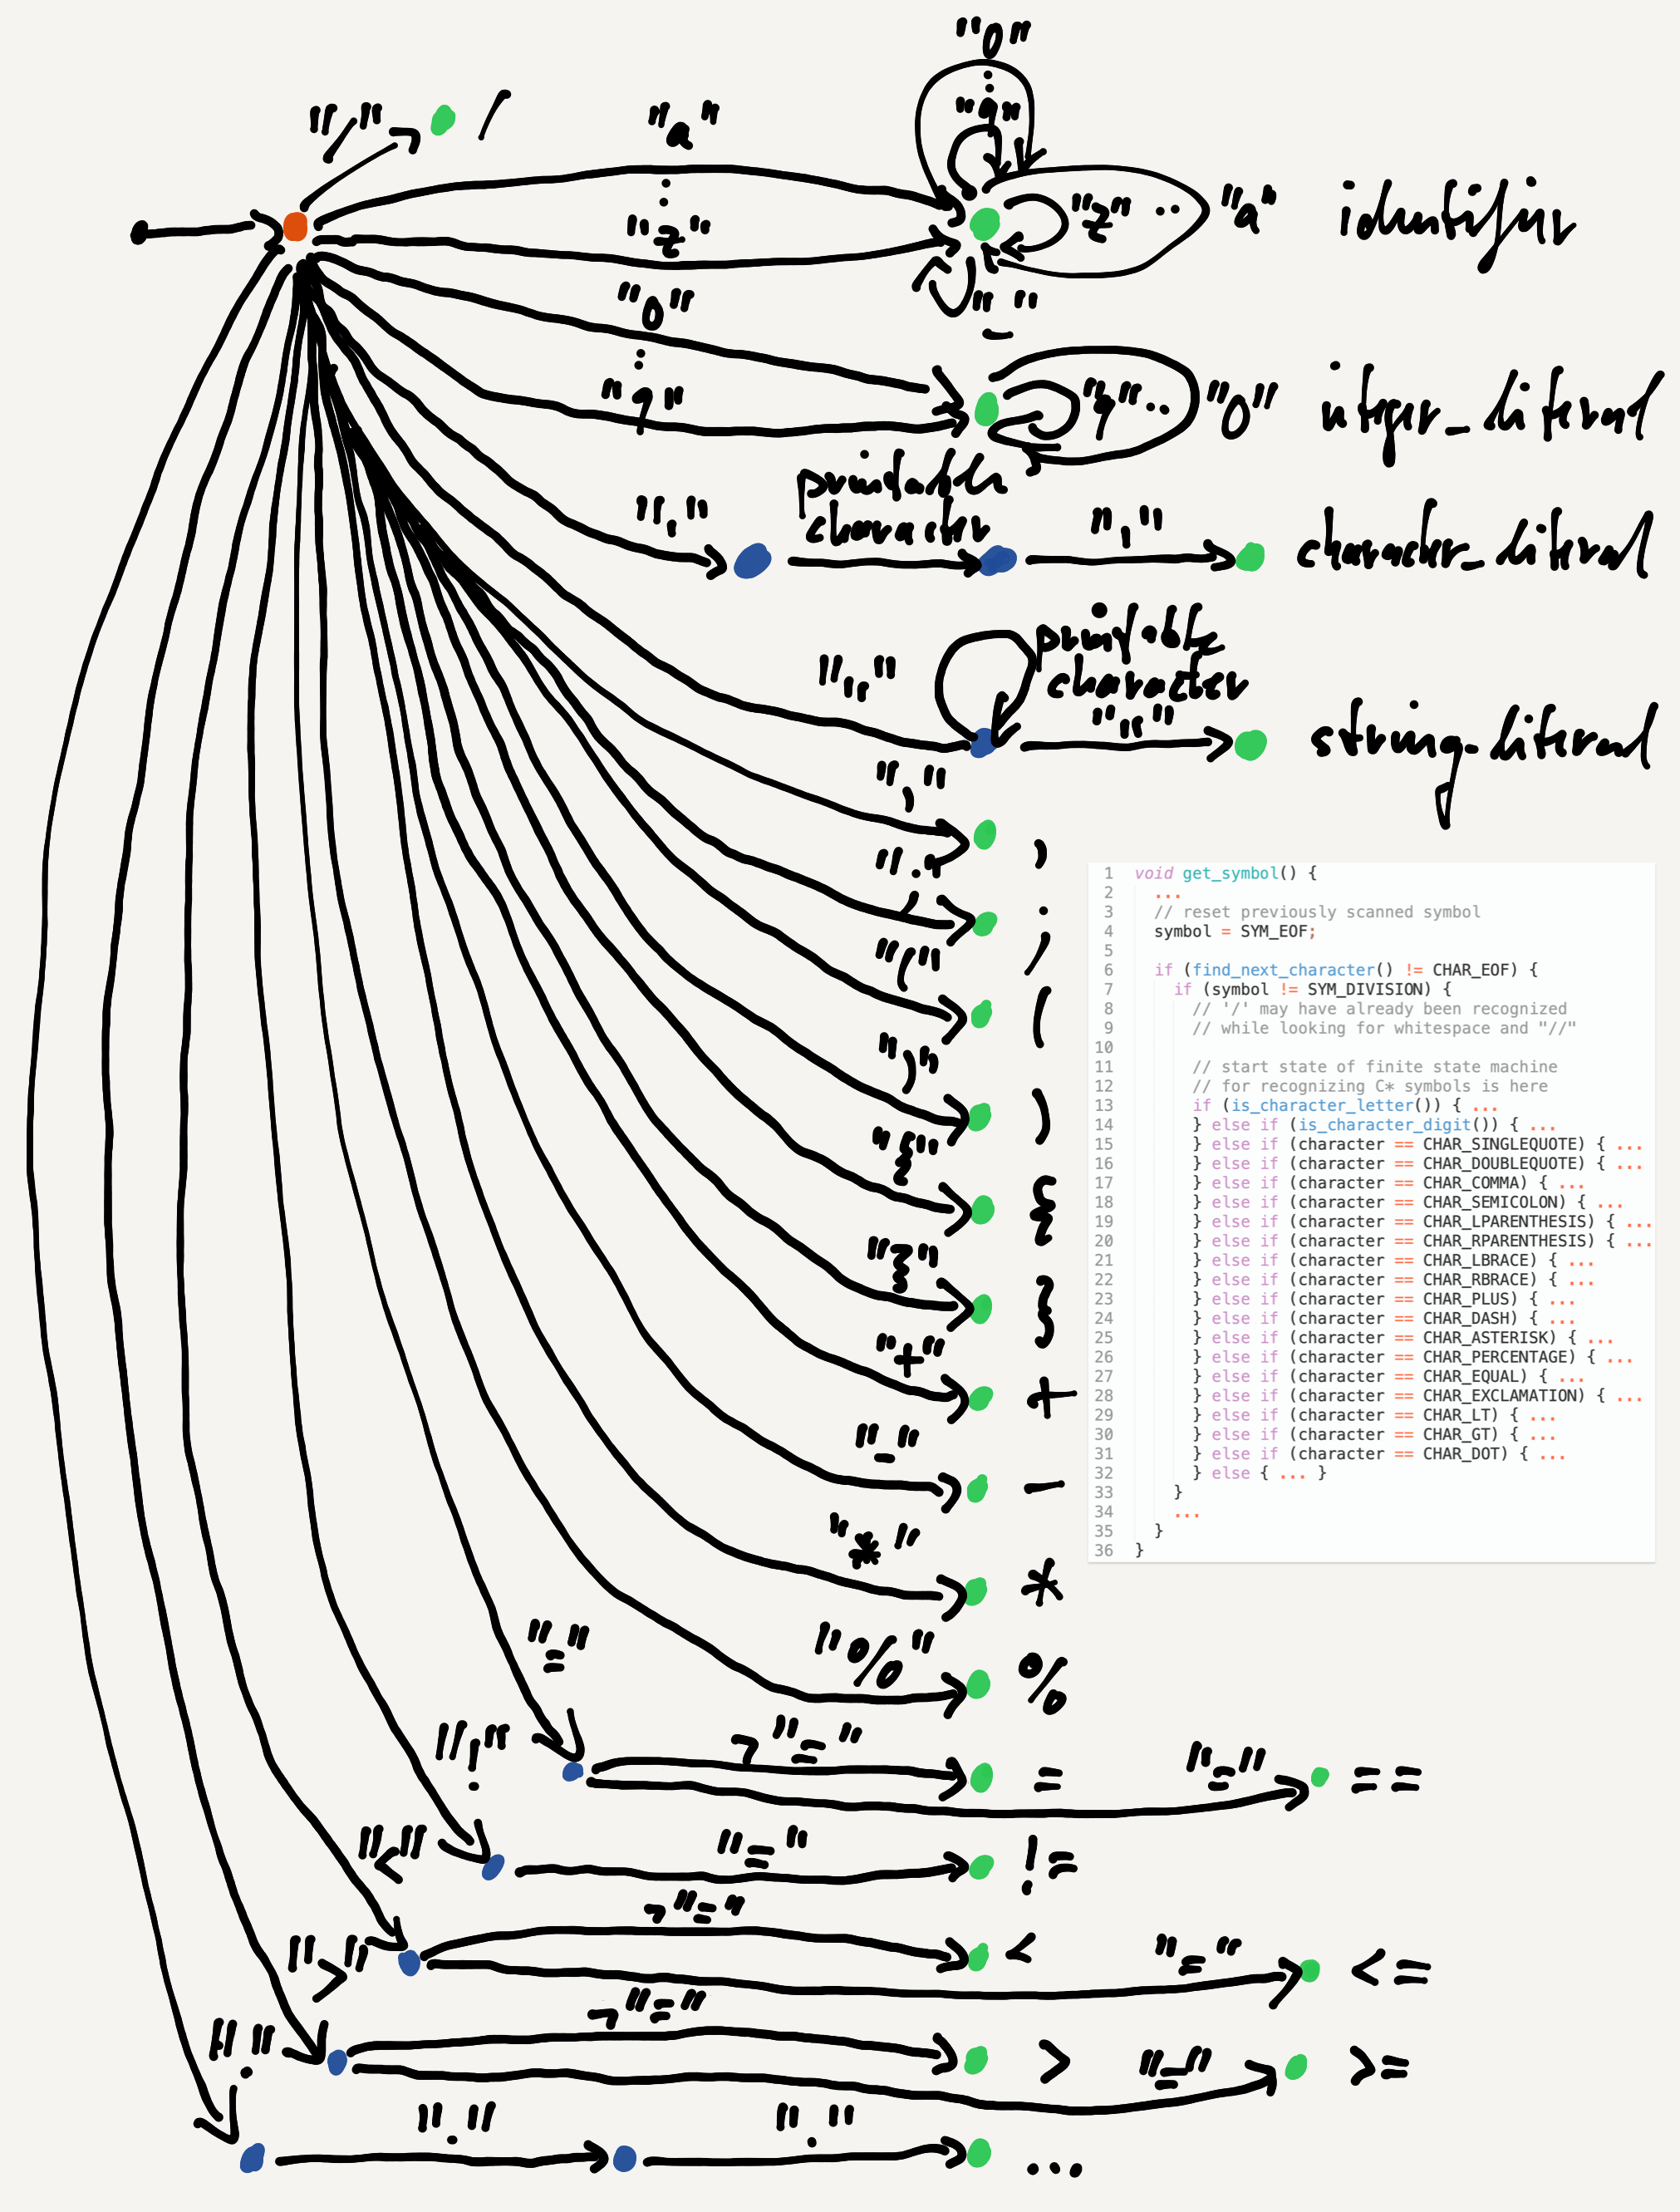 "0"
"/" /
"a" "9"
"z" "z" .. "a" identifier
"0" "_"
"9" "9" .. "0" integer_literal
printable
"'" character "'" character_literal
printable
""" character
""" string_literal
"," ,
";" ;
"(" (
")" )
"{" {
"}" }
"+" +
"-" -
"*" *
"%" %
"="
"!" ¬"=" = "=" ==
"<" "=" !=
">" ¬"=" < "=" <=
"." ¬"=" > "=" >=
"." "." ...
1 void get_symbol() {
2 ...
3 // reset previously scanned symbol
4 symbol = SYM_EOF;
5
6 if (find_next_character() != CHAR_EOF) {
7 if (symbol != SYM_DIVISION) {
8 // '/' may have already been recognized
9 // while looking for whitespace and "//"
10
11 // start state of finite state machine
12 // for recognizing C* symbols is here
13 if (is_character_letter()) { ...
14 } else if (is_character_digit()) { ...
15 } else if (character == CHAR_SINGLEQUOTE) { ...
16 } else if (character == CHAR_DOUBLEQUOTE) { ...
17 } else if (character == CHAR_COMMA) { ...
18 } else if (character == CHAR_SEMICOLON) { ...
19 } else if (character == CHAR_LPARENTHESIS) { ...
20 } else if (character == CHAR_RPARENTHESIS) { ...
21 } else if (character == CHAR_LBRACE) { ...
22 } else if (character == CHAR_RBRACE) { ...
23 } else if (character == CHAR_PLUS) { ...
24 } else if (character == CHAR_DASH) { ...
25 } else if (character == CHAR_ASTERISK) { ...
26 } else if (character == CHAR_PERCENTAGE) { ...
27 } else if (character == CHAR_EQUAL) { ...
28 } else if (character == CHAR_EXCLAMATION) { ...
29 } else if (character == CHAR_LT) { ...
30 } else if (character == CHAR_GT) { ...
31 } else if (character == CHAR_DOT) { ...
32 } else { ... }
33 }
34 ...
35 }
36 }